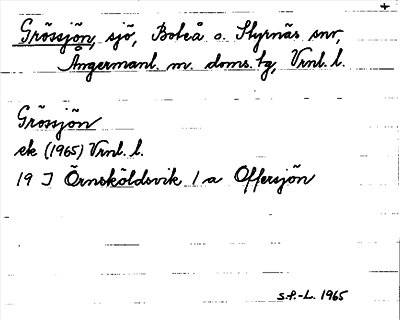 +
Grössjön, sjö, Boteå o. Styrnäs snr,
Ångermanl. m. doms.tg, Vrnl. l.
Grössjön
ek (1965) Vrnl. l.
19 J Örnsköldsvik 1 a Offersjön
S.F.-L. 1965